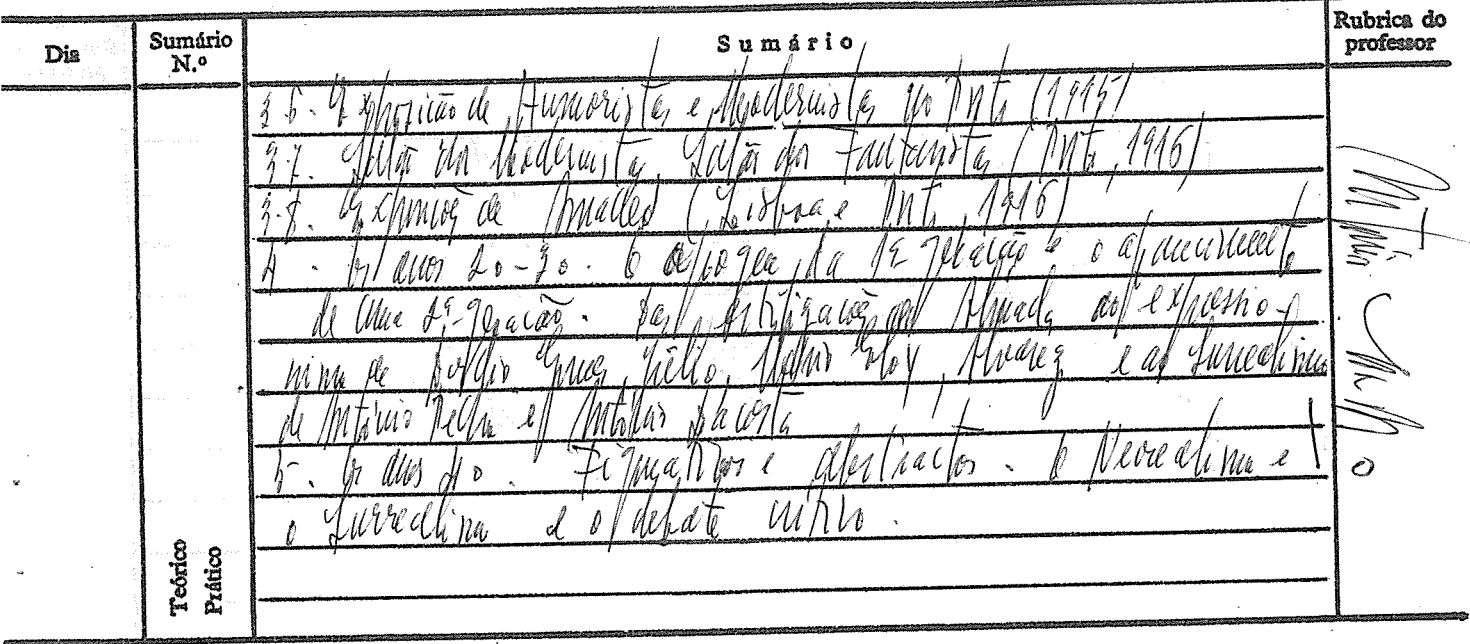 Dia
Sumário N.º
Sumário
Rubrica do professor
3.6. Exposição de Humoristas e Modernistas no Porto (1915)
3.7. Salão dos Modernistas, Salão dos Fantasistas (Porto, 1916)
3.8. Exposição de Amadeo (Lisboa e Porto, 1916)
4. Os anos 20-30. O apogeu da 1ª geração e o aparecimento
de uma 2ª geração. Das de Almada ao expressio-
nismo de Mário Eloy, Alvarez e ao surrealismo
de António Pedro e António Dacosta
5. Os anos 40. Figurativos e abstractos. O Neorealismo e
o Surrealismo e o debate crítico.
Teórico
Prático